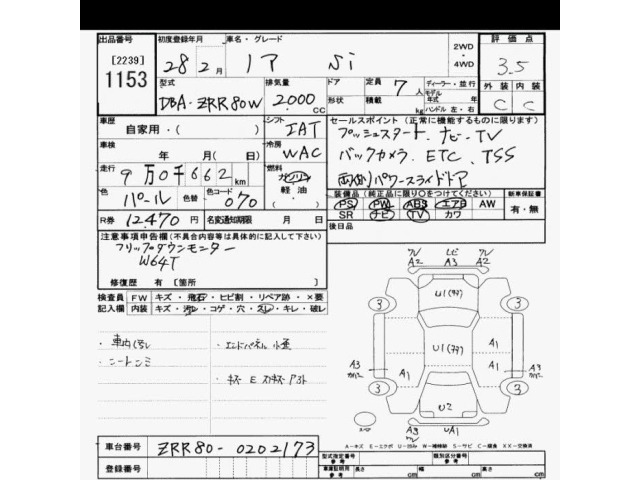 出品番号 初度登録年月 車名・グレード 評価点
[2239] 2WD
・
4WD
1153 28年2月 Si 3.5
型式 排気量 ドア 定員 ディーラー・並行
DBA-ZRR80W 2000 cc 形状 7人 モデル年式 年
積載 kg ハンドル 左・右
外装 内装
C C
車歴 シフト セールスポイント(正常に機能するものに限ります)
自家用・( ) IAT プッシュスタート、ナビ・TV
車検 冷房 バックカメラ、ETC、TSS
年 月(書 日) WAC パワースライドドア
走行 燃料
9万0千662km ガソリン
軽油
( )
色 色替 色コード 装備品(純正品に限り○をつけてください) 新車保証書
パール 070 PS PW ABS エアB AW 有・無
SR ナビ TV カワ
R券 12,470円 名変通知期限 月 日 後日品
注意事項申告欄(不具合内容等は具体的に記入して下さい)
フリップダウンモニター
W64T
修復歴 有[箇所 ]
検査員 FW キズ・飛石・ヒビ割・リペア跡・×要
記入欄 内装 キズ・汚レ・コゲ・穴・スレ・キレ・破レ
・車内 ・エンドパネル
・シート
・キズ E
ワレ A2 サビ A3 ワレ A2
U1
3 3
U1 A1
A1 A1
A3 A3
3 3
U2
A3 UA1
ワレ
A-キズ E-エクボ U-凹み W-補修跡 S-サビ C-腐食 XX-交換済
車台番号 ZRR80-0202173
登録番号
型式指定番号 参考 類別区分番号 参考
車庫証明用 参考 長さ cm 幅 cm 高さ cm